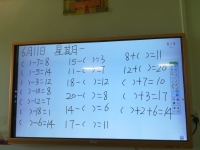 6月11日 星期一
( )-7=8 15-( )=3 8+( )=11
( )-5=14 11-( )=7 12+( )=20
( )-3=11 18-( )=12 ( )+7=10
( )-10=8 20-( )=8 ( )+3=17
( )-12=7 14-( )=6 ( )+2+6=14
( )-18=1 17-( )=11
( )-6=14